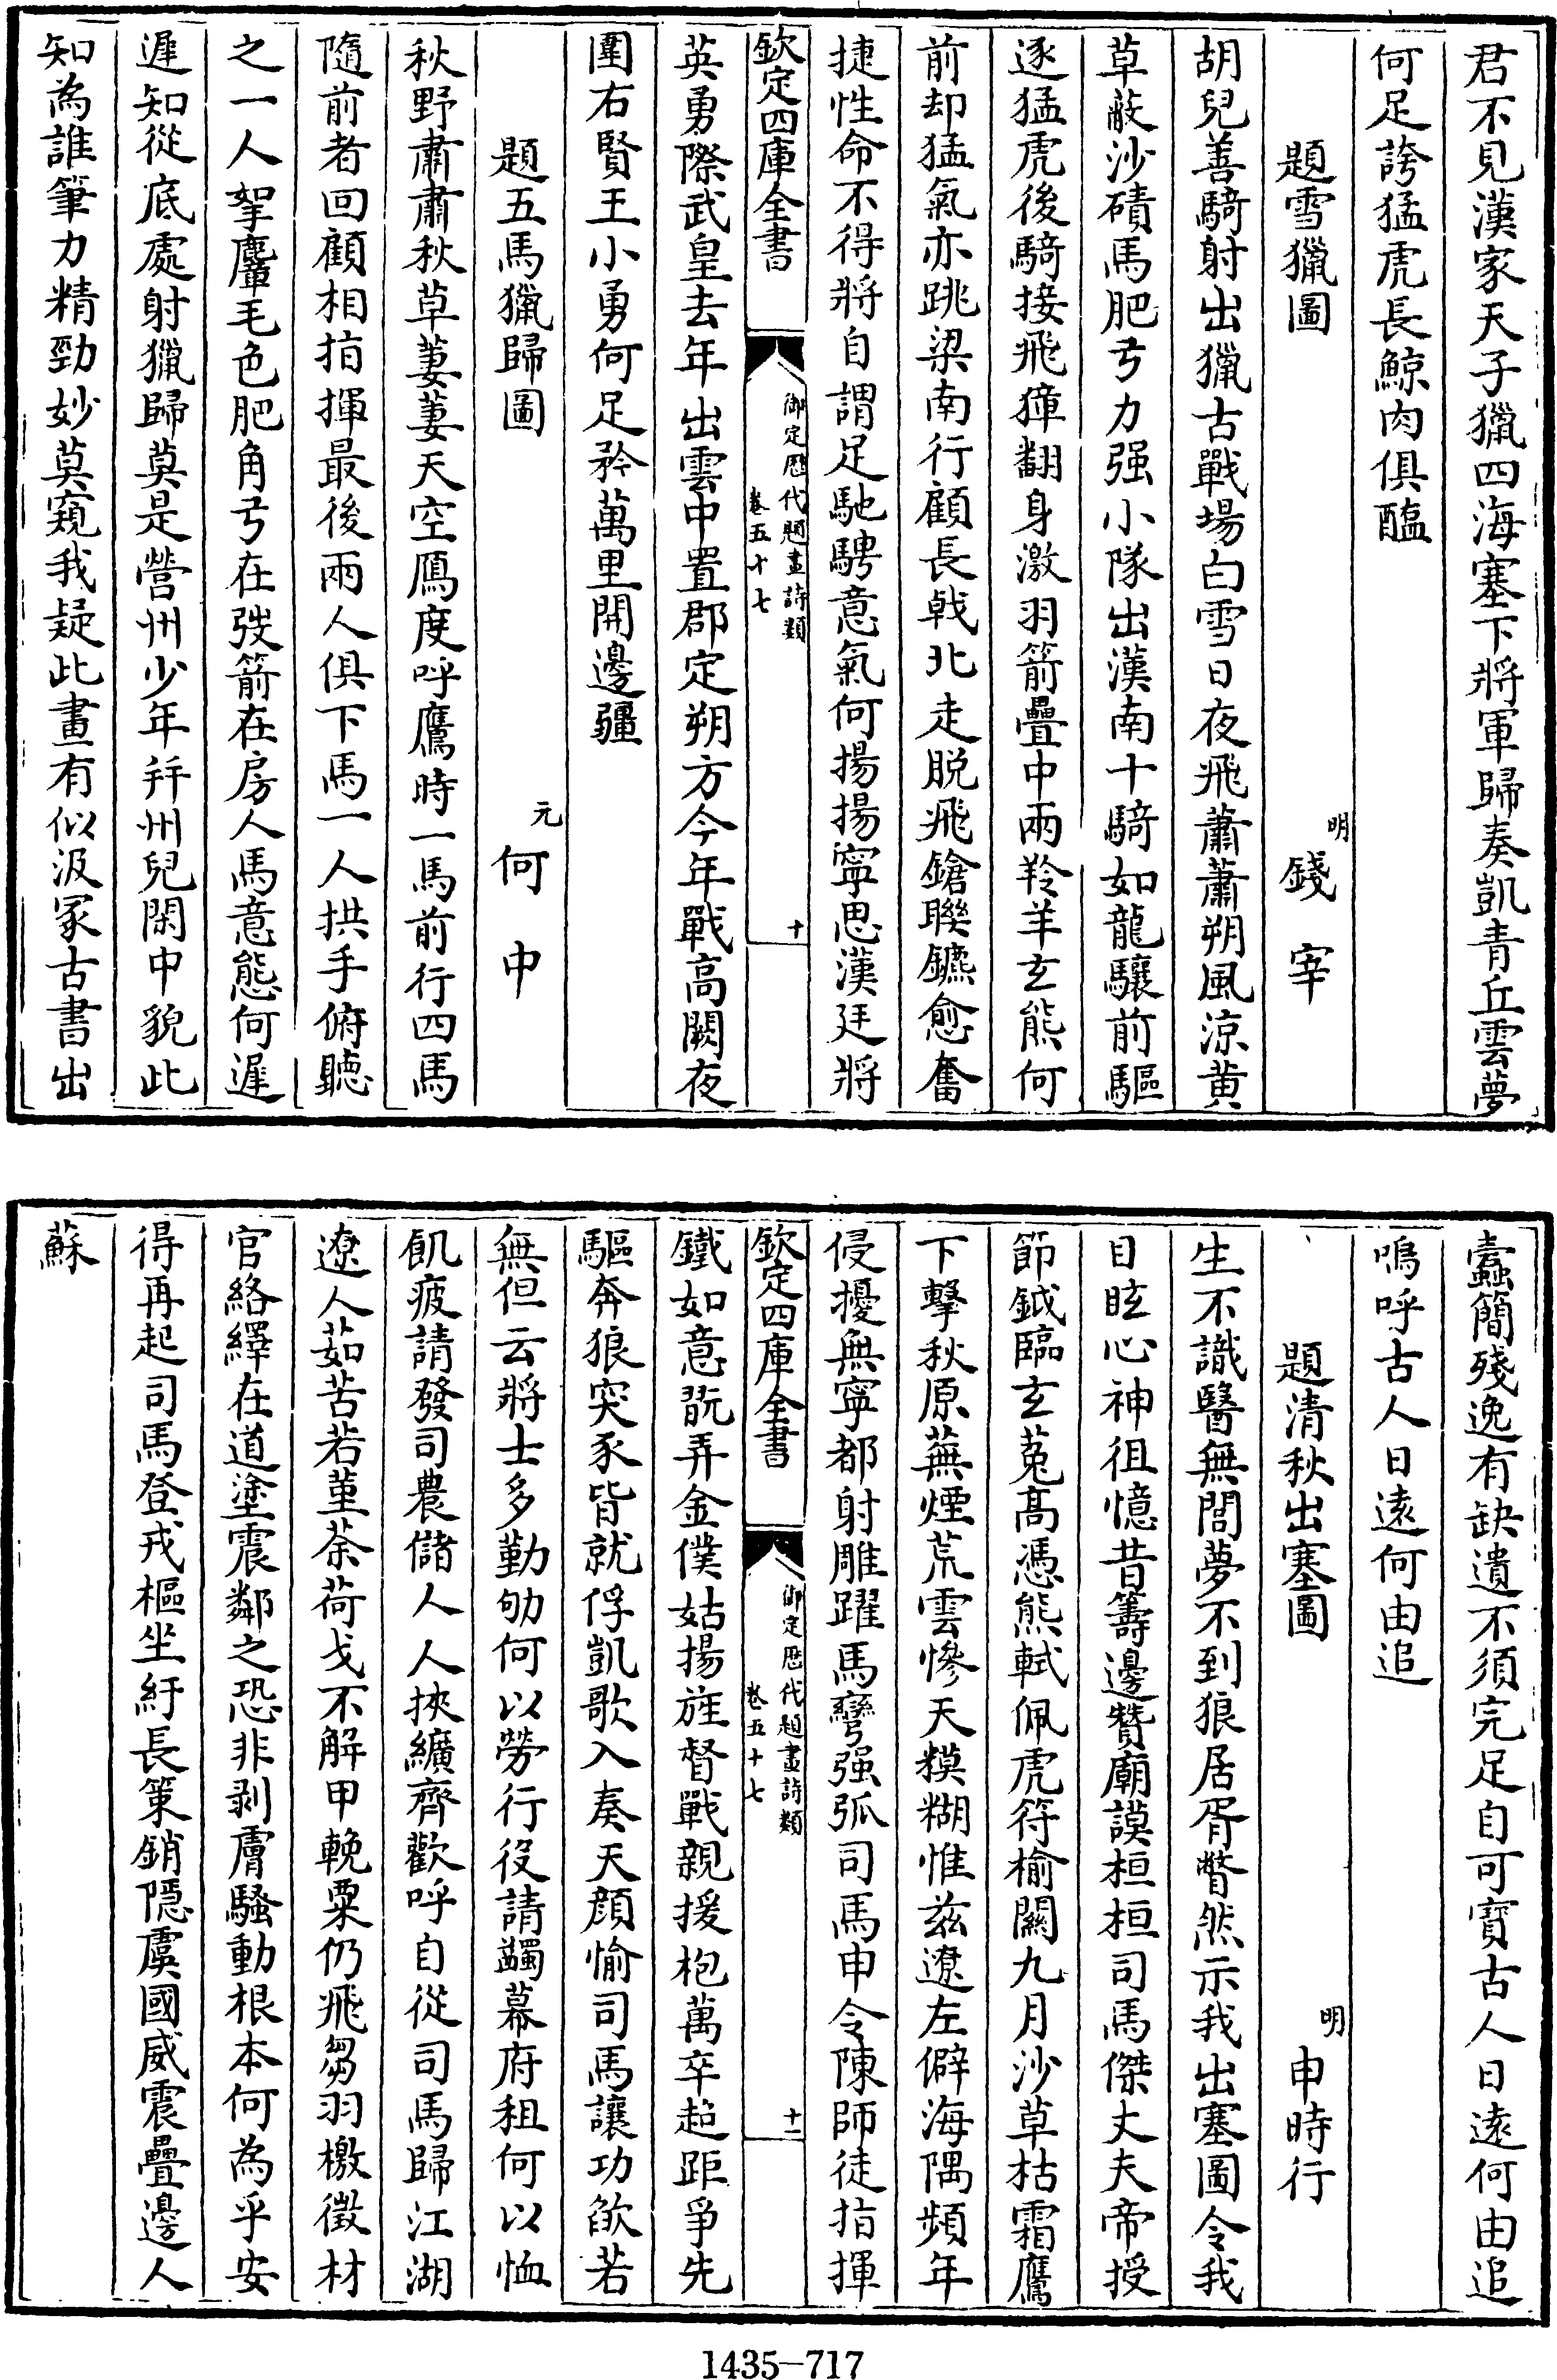 君不見漢家天子獵四海塞下將軍歸奏凱青丘雲夢
何足誇猛虎長鯨肉俱醢
題雪獵圖
明
錢宰
胡兒善騎射出獵古戰場白雪日夜飛蕭蕭朔風涼黄
草蔽沙磧馬肥弓力强小隊出漢南十騎如龍驤前驅
逐猛虎後騎接飛獐翻身激羽箭疊中兩羚羊玄熊何
前却猛氣亦跳梁南行顧長戟北走脱飛鎗聯鑣愈奮
捷性命不得將自謂足馳騁意氣何揚揚寧思漢廷將
欽定四庫全書
御定歴代題畫詩類
卷五十七
十
英勇際武皇去年出雲中置郡定朔方今年戰高闕夜
圍右賢王小勇何足矜萬里開邊疆
題五馬獵歸圖
元
何中
秋野肅肅秋草萋萋天空鴈度呼鷹時一馬前行四馬
隨前者回顧相指揮最後兩人俱下馬一人拱手俯聽
之一人挐麞毛色肥角弓在弢箭在房人馬意態何遲
遲知從底處射獵歸莫是營州少年并州兒閑中貌此
知為誰筆力精勁妙莫窺我疑此畫有似汲冢古書出
蠹簡殘逸有缺遺不須完足自可寶古人日逺何由追
鳴呼古人日逺何由追
題清秋出塞圖
明
申時行
生不識醫無閭夢不到狼居胥瞥然示我出塞圖令我
目眩心神徂憶昔籌邊贊廟謨桓桓司馬傑丈夫帝授
節鉞臨玄菟髙憑熊軾佩虎符榆關九月沙草枯霜鷹
下擊秋原蕪煙荒雲慘天糢糊惟兹遼左僻海隅頻年
侵擾無寧都射雕躍馬彎强弧司馬申令陳師徒指揮
欽定四庫全書
御定歴代題畫詩類
卷五十七
十一
鐵如意翫弄金僕姑揚旌督戰親援枹萬卒超距爭先
驅奔狼突豕皆就俘凱歌入奏天顔愉司馬讓功欿若
無但云將士多勤劬何以勞行役請蠲幕府租何以恤
飢疲請發司農儲人人挾纊齊歡呼自從司馬歸江湖
遼人茹苦若堇荼荷戈不解甲輓粟仍飛芻羽檄徵材
官絡繹在道塗震鄰之恐非剥膚騷動根本何為乎安
得再起司馬登戎樞坐紆長策銷隱虞國威震疊邊人
蘇
1435-717